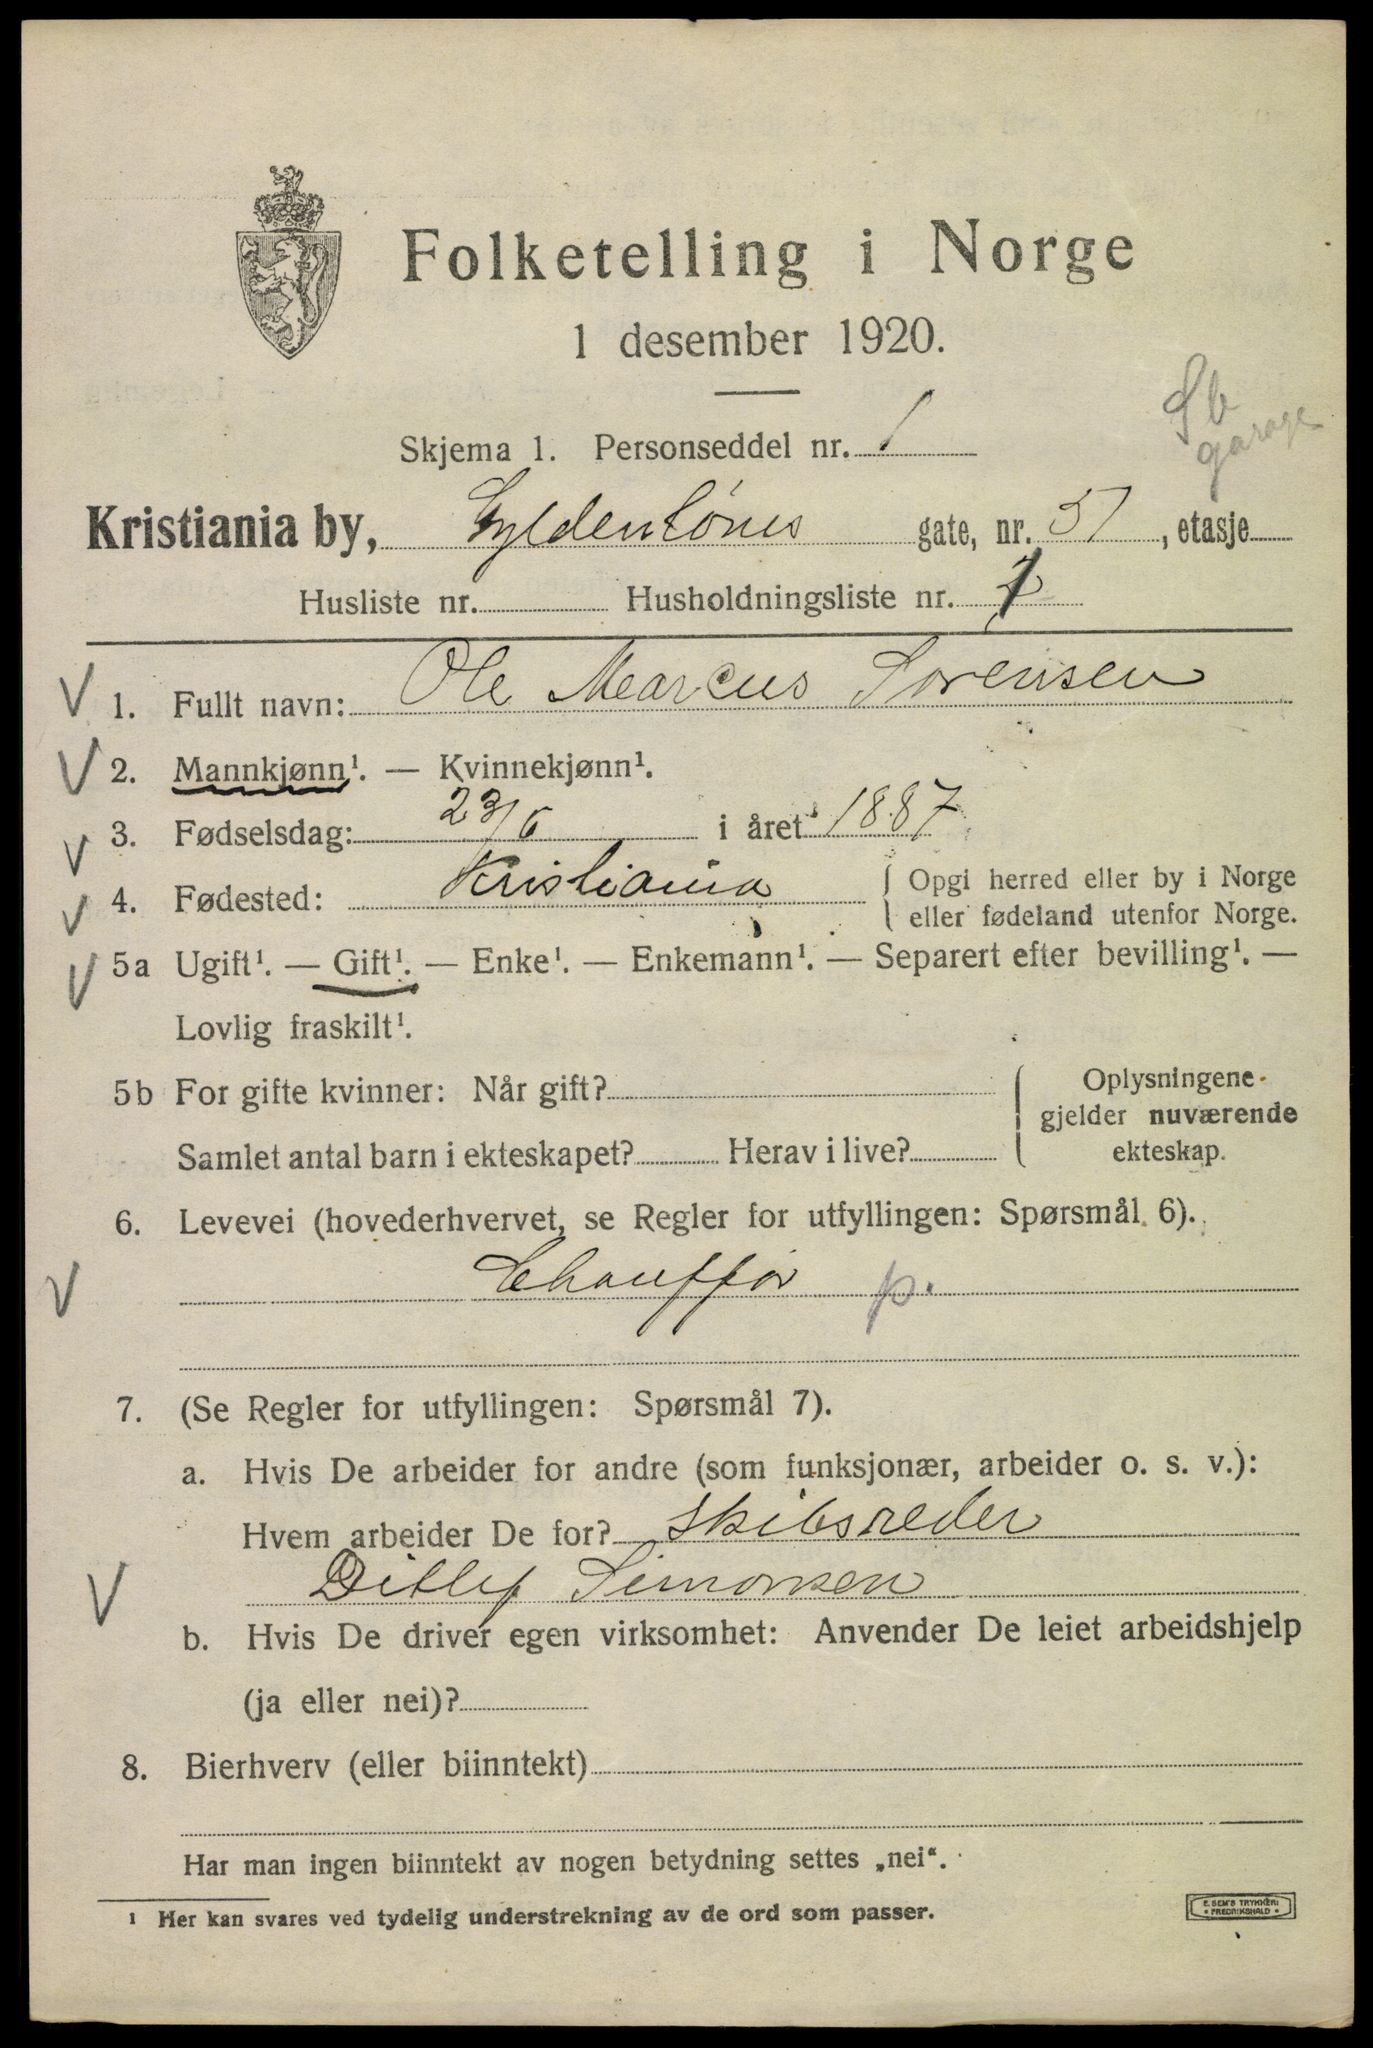 Folketelling i Norge
1 desember 1920.
Sb
garage
Skjema 1. Personseddel nr. 1
Kristiania by, Gyldenlöves gate, nr. 37, etasje
Husliste nr. Husholdningsliste nr. 1
1. Fullt navn: Ole Marcus Sorensen
2. Mannkjønn¹. — Kvinnekjønn¹.
3. Fødselsdag: 23/6 i året 1887
4. Fødested: Kristiania { Opgi herred eller by i Norge
eller fødeland utenfor Norge.
5a Ugift¹. — Gift¹. — Enke¹. — Enkemann¹. — Separert efter bevilling¹. —
Lovlig fraskilt¹.
5b For gifte kvinner: Når gift? { Oplysningene
gjelder nuværende
Samlet antal barn i ekteskapet? Herav i live? ekteskap.
6. Levevei (hovederhvervet, se Regler for utfyllingen: Spørsmål 6).
Chauffør p.
7. (Se Regler for utfyllingen: Spørsmål 7).
a. Hvis De arbeider for andre (som funksjonær, arbeider o. s. v.):
Hvem arbeider De for? Skibsreder
Ditlef Simonsen
b. Hvis De driver egen virksomhet: Anvender De leiet arbeidshjelp
(ja eller nei)?
8. Bierhverv (eller biinntekt)
Har man ingen biinntekt av nogen betydning settes „nei“.
¹ Her kan svares ved tydelig understrekning av de ord som passer.
E. SEM'S TRYKKERI
• FREDRIKSHALD •